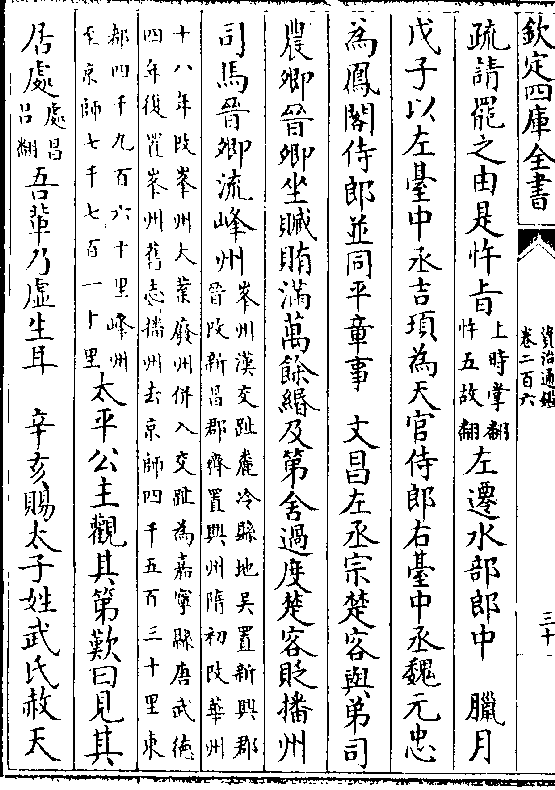 欽定四庫全書
資治通鑑
卷二百六
三十
疏請罷之由是忤旨上時掌翻忤五故翻左遷水部郎中　臘月
戊子以左臺中丞吉頊為天官侍郎右臺中丞魏元忠
為鳳閣侍郎並同平章事　文昌左丞宗楚客與弟司
農卿晉卿坐贓賄滿萬餘緡及第舍過度楚客貶播州
司馬晉卿流峰州峯州漢交趾麊冷縣地吳置新興郡晉改新昌郡齊置興州隋初改華州
十八年改峯州大業廢州併入交趾為嘉寧縣唐武德四年復置峯州舊志播州去京師四千五百三十里東
都四千九百六十里峰州至京師七千七百一十里太平公主觀其第歎曰見其
居處處昌呂翻吾輩乃虛生耳　辛亥賜太子姓武氏赦天